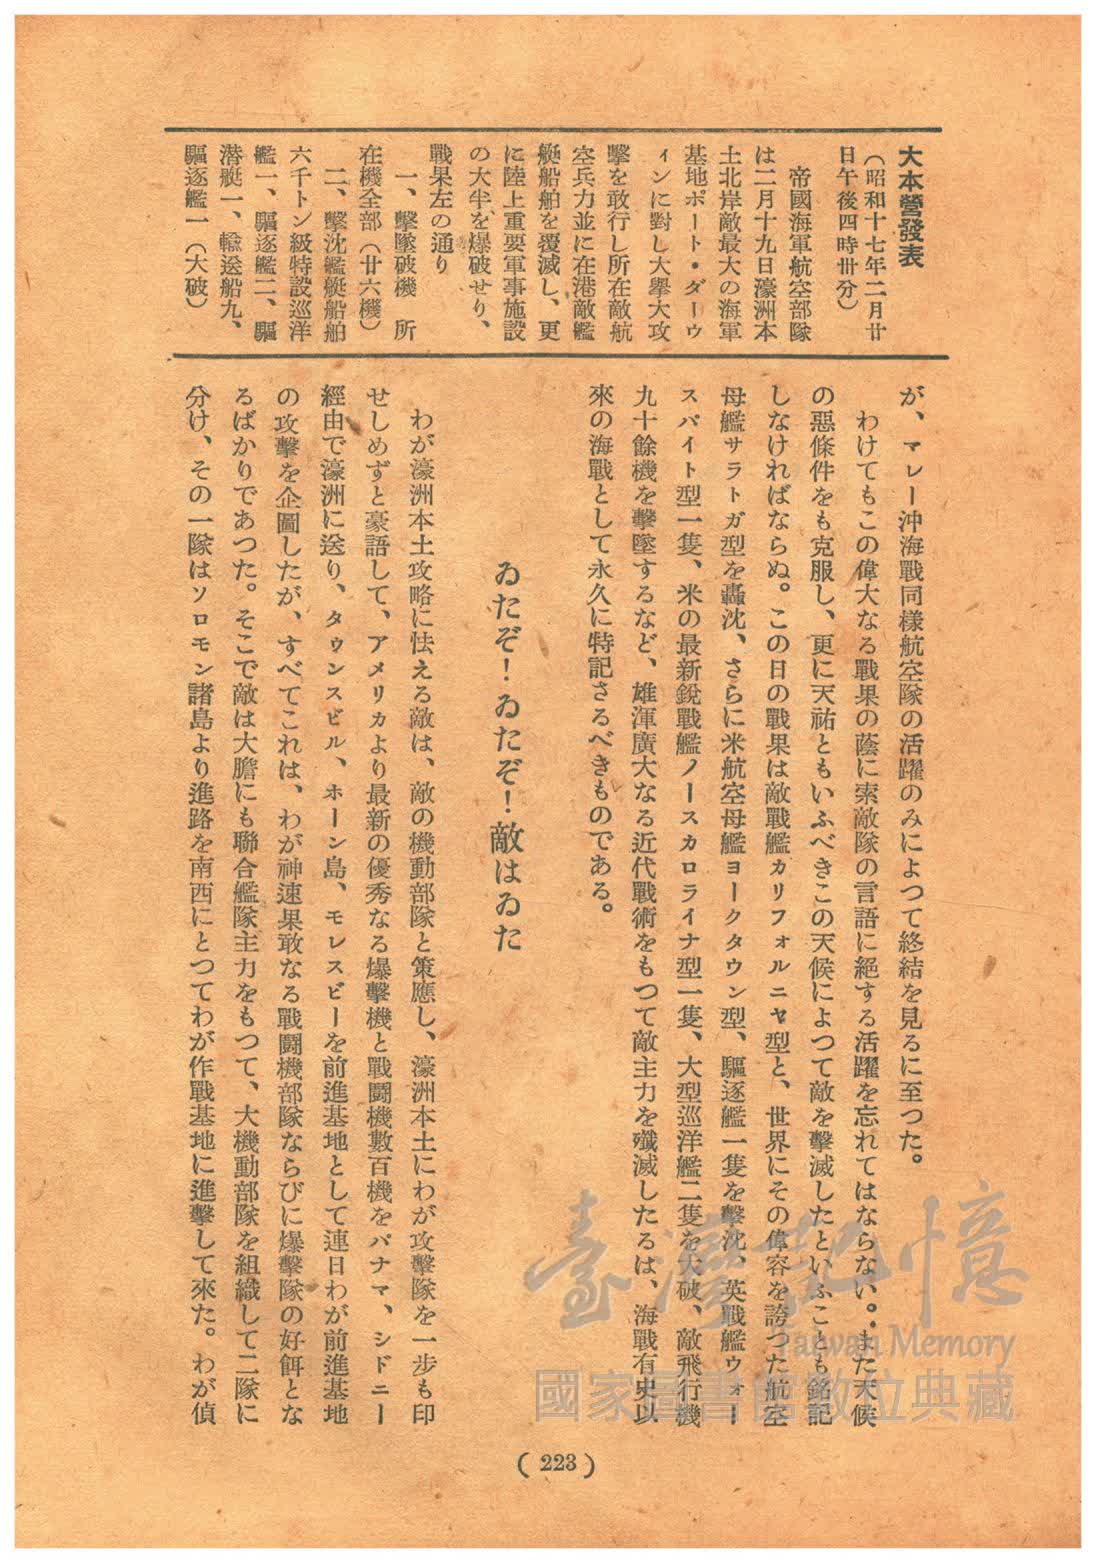 大本營發表
(昭和十七年二月廿
日午後四時卅分)
帝國海軍航空部隊
は二月十九日濠洲本
土北岸敵最大の海軍
基地ポート・ダーウ
ィンに對し大擧大攻
擊を敢行し所在敵航
空兵力並に在港敵艦
艇船舶を覆滅し、更
に陸上重要軍事施設
の大半を爆破せり、
戰果左の通り
一、擊墜破機 所
在機全部(廿六機)
二、擊沈艦艇船舶
六千トン級特設巡洋
艦一、驅逐艦二、驅
潜艇一、輸送船九、
驅逐艦一(大破)
が、マレー沖海戰同樣航空隊の活躍のみによつて終結を見るに至つた。
わけてもこの偉大なる戰果の蔭に索敵隊の言語に絕する活躍を忘れてはならない。また天候
の惡條件をも克服し、更に天祐ともいふべきこの天候によつて敵を擊滅したといふことも銘記
しなければならぬ。この日の戰果は敵戰艦カリフォルニヤ型と、世界にその偉容を誇つた航空
母艦サラトガ型を轟沈、さらに米航空母艦ヨークタウン型、驅逐艦一隻を擊沈、英戰艦ウォー
スパイト型一隻、米の最新銳戰艦ノースカロライナ型一隻、大型巡洋艦二隻を大破、敵飛行機
九十餘機を擊墜するなど、雄渾廣大なる近代戰術をもつて敵主力を殲滅したるは、海戰有史以
來の海戰として永久に特記さるべきものである。
ゐたぞ！ゐたぞ！敵はゐた
わが濠洲本土攻略に怯える敵は、敵の機動部隊と策應し、濠洲本土にわが攻擊隊を一步も印
せしめずと豪語して、アメリカより最新の優秀なる爆擊機と戰鬪機數百機をパナマ、シドニー
經由で濠洲に送り、タウンスビル、ホーン島、モレスビーを前進基地として連日わが前進基地
の攻擊を企圖したが、すべてこれは、わが神速果敢なる戰鬪機部隊ならびに爆擊隊の好餌とな
るばかりであつた。そこで敵は大膽にも聯合艦隊主力をもつて、大機動部隊を組織して二隊に
分け、その一隊はソロモン諸島より進路を南西にとつてわが作戰基地に進擊して來た。わが偵
(223)
臺灣記憶
Taiwan Memory
國家圖書館數位典藏